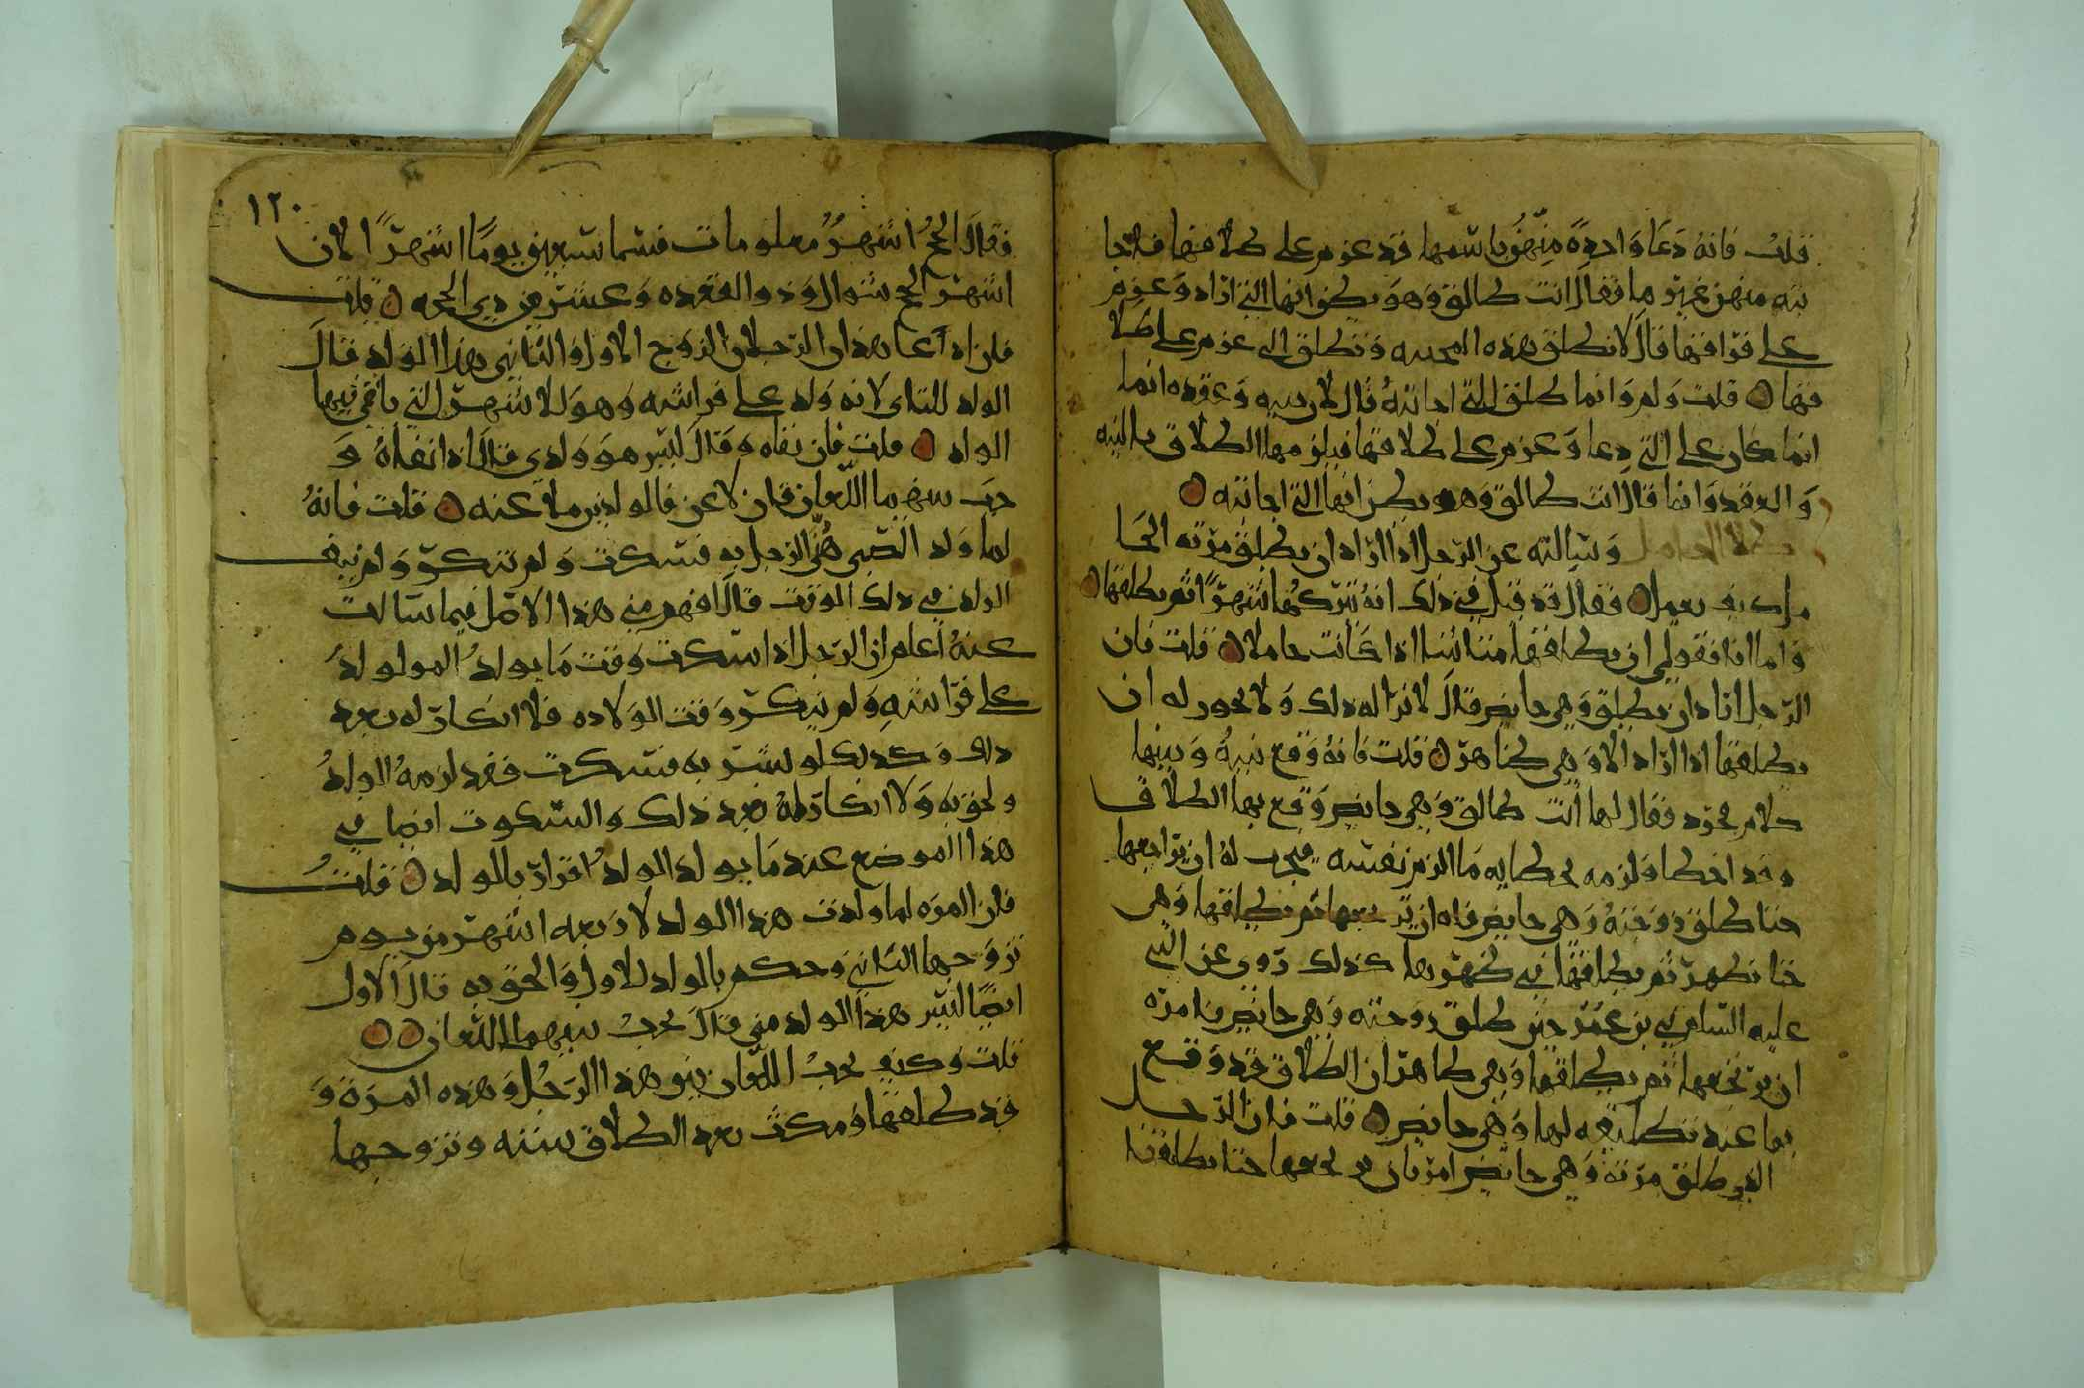 قلت فانه دعا واحدة منهن باسمها قد عزم على طلاقها فاجا
بته منهن غيرها فقال انت طالق وهو يظن انها التي اراد وعزم
على فراقها قال لا تطلق هذه المجيبه وتطلق التي عزم على طلا
قها قلت ولم وانما طلق التي اجابته قال لان نيته وعقده انما
انما كان على التي دعا وعزم على طلاقها فيلزمها الطلاق بالنيه
والعقد وانما قال انت طالق وهو يظن انها التي اجابته
طلاق الحامل وسالته عن الرجل اذا اراد ان يطلق مرته الحا
مل كيف يعمل فقال قد قيل في ذلك انه يتركها شهرا ثم يطلقها
واما انا فقولي ان يطلقها متا شا اذا كانت حاملا قلت فان
الرجل اراد ان يطلق وهي حايض قال لا نرا له ذلك ولا يجوز له ان
يطلقها اذا اراد الا وهي طاهر قلت فانه وقع بينه وبينها
كلام فقال لها انت طالق وهي حايض وقع بها الطلاق
وقد اخطا ولزمه بخطايه ما الزم نفسه فيجب له ان يراجعها
متا طلق زوجته وهي حايض فاه ان يرتجعها ثم يطلقها وهي
حتا تطهر ثم يطلقها في طهرها كذلك روي عن النبي
عليه السلم في بن عمر حين طلق زوجته وهي حايض فامره
ان يرتجعها ثم يطلقها وهي طاهر ان الطلاق قد وقع
بها عند تطليقه لها وهي حايض قلت فان الرجل
الذي طلق مرته وهي حايض امر بان يرتجعها حتا يطلقها
١٢٠
فقال الحج اشهر معلومات فسما تسعين يوما اشهرا لان
اشهر الحج شوال وذو القعده وعشر من ذي الحجه قلت
فان ادعا هذان الرجلان الزوج الاول والثاني هذا الولد قال
الولد للثاني لانه ولد على فراشه وهو لاشهر التي ياتي فيها
الولد قلت فان نفاه وقال ليس هو ولدي قال اذا نفاه و
جب بينهما اللعان فان لاعن فالولد منفي عنه قلت فانه
لما ولد الصبي هني الرجل به فسكت ولم ينكر ولم ينف
الولد في ذلك الوقت قال افهم مني هذا الاصل فيما سالت
عنه اعلم ان الرجل اذا سكت وقت ما يولد المولود
على فراشه ولم ينكر وقت الولاده فلا انكار له بعد
ذلك وكذلك لو بشر به فسكت فقد لزمه الولد
ولحق به ولا انكار له بعد ذلك والسكوت ايضا في
هذا الموضع عند ما يولد الولد اقرار بالولد قلت
فان المره لما ولدت هذا الولد لاربعه اشهر من يوم
تزوجها الثاني وحكم بالولد للاول والحق به قال الاول
ايضا ليس هذا الولد مني قال يجب بينهما اللعان
قلت وكيف يجب اللعان بين هذا الرجل وهذه المرة و
قد طلقها ومكثت بعد الطلاق سنه وتزوجها